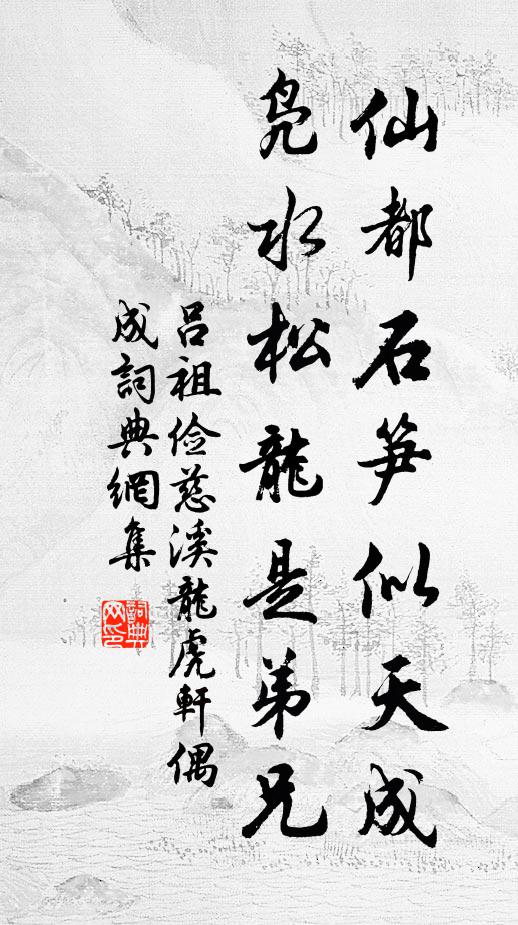 仙都石笋似天成
凫水松龍是弟兄
呂祖俭慈溪龍虎軒偶
成詞典網集
詞典
网印